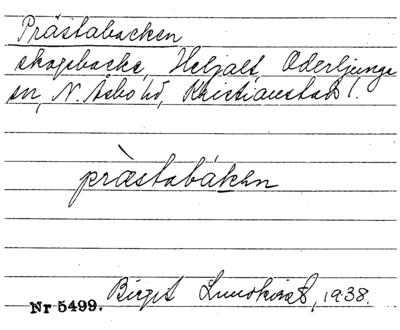 Prästabacken
skogsbacke, Heljalt, Oderljunga
sn, N. Åsbo hd, Kristianstads l.
præ̀stabákӕn
Birgit Lundkvist, 1938.
Nr 5499.